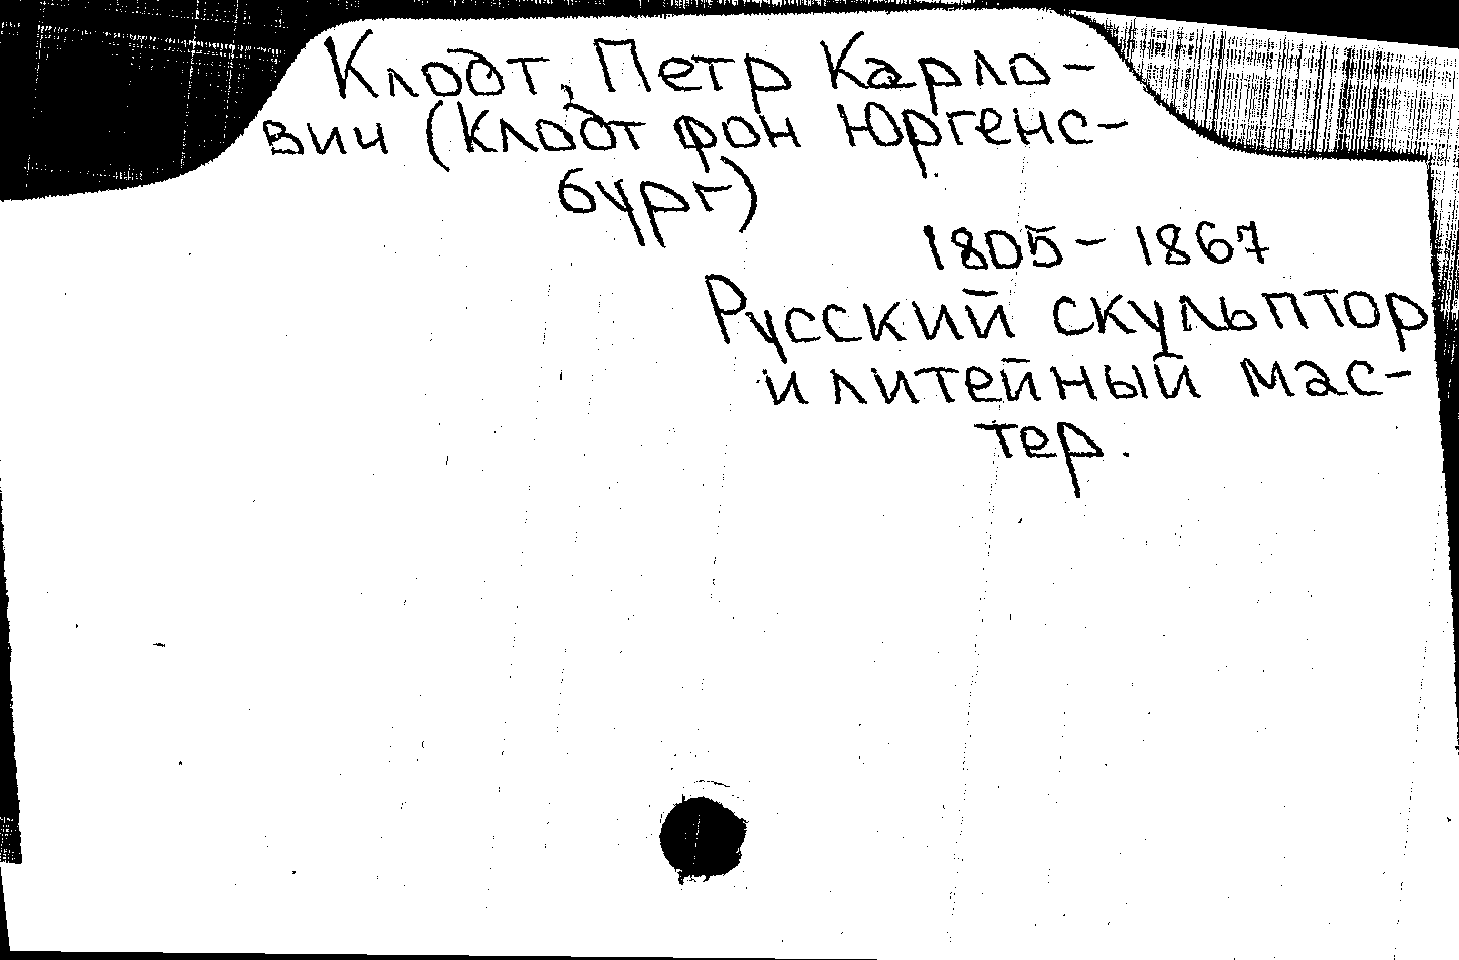 Клодт, Петр Карло-
вич (Клодт фон Юргенс-
бург)
1805 - 1867
Русский скульптор
и литейный мас-
тер.